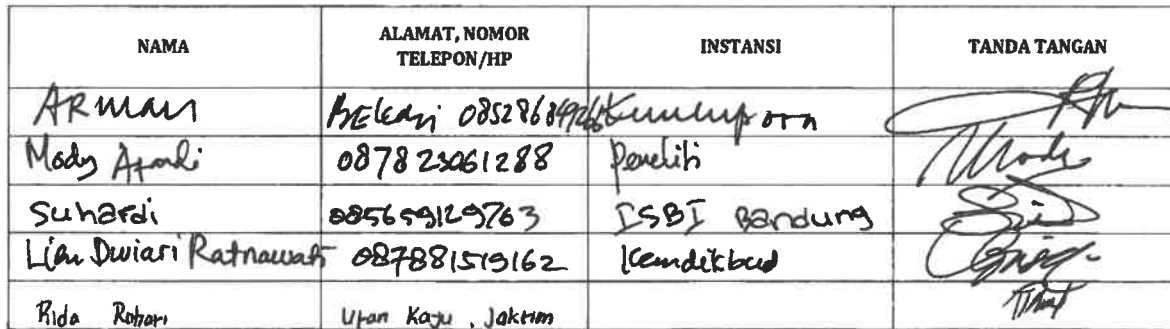 NAMA
ALAMAT, NOMOR
TELEPON/HP
INSTANSI
TANDA TANGAN
ARMAN
BEKASI
Mody
087823061288
Peneliti
Suhardi
085659129763
ISBI Bandung
Lian Dwiari Ratnawati
087881519162
Kemdikbud
Rida
Utan Kayu, Jaktim